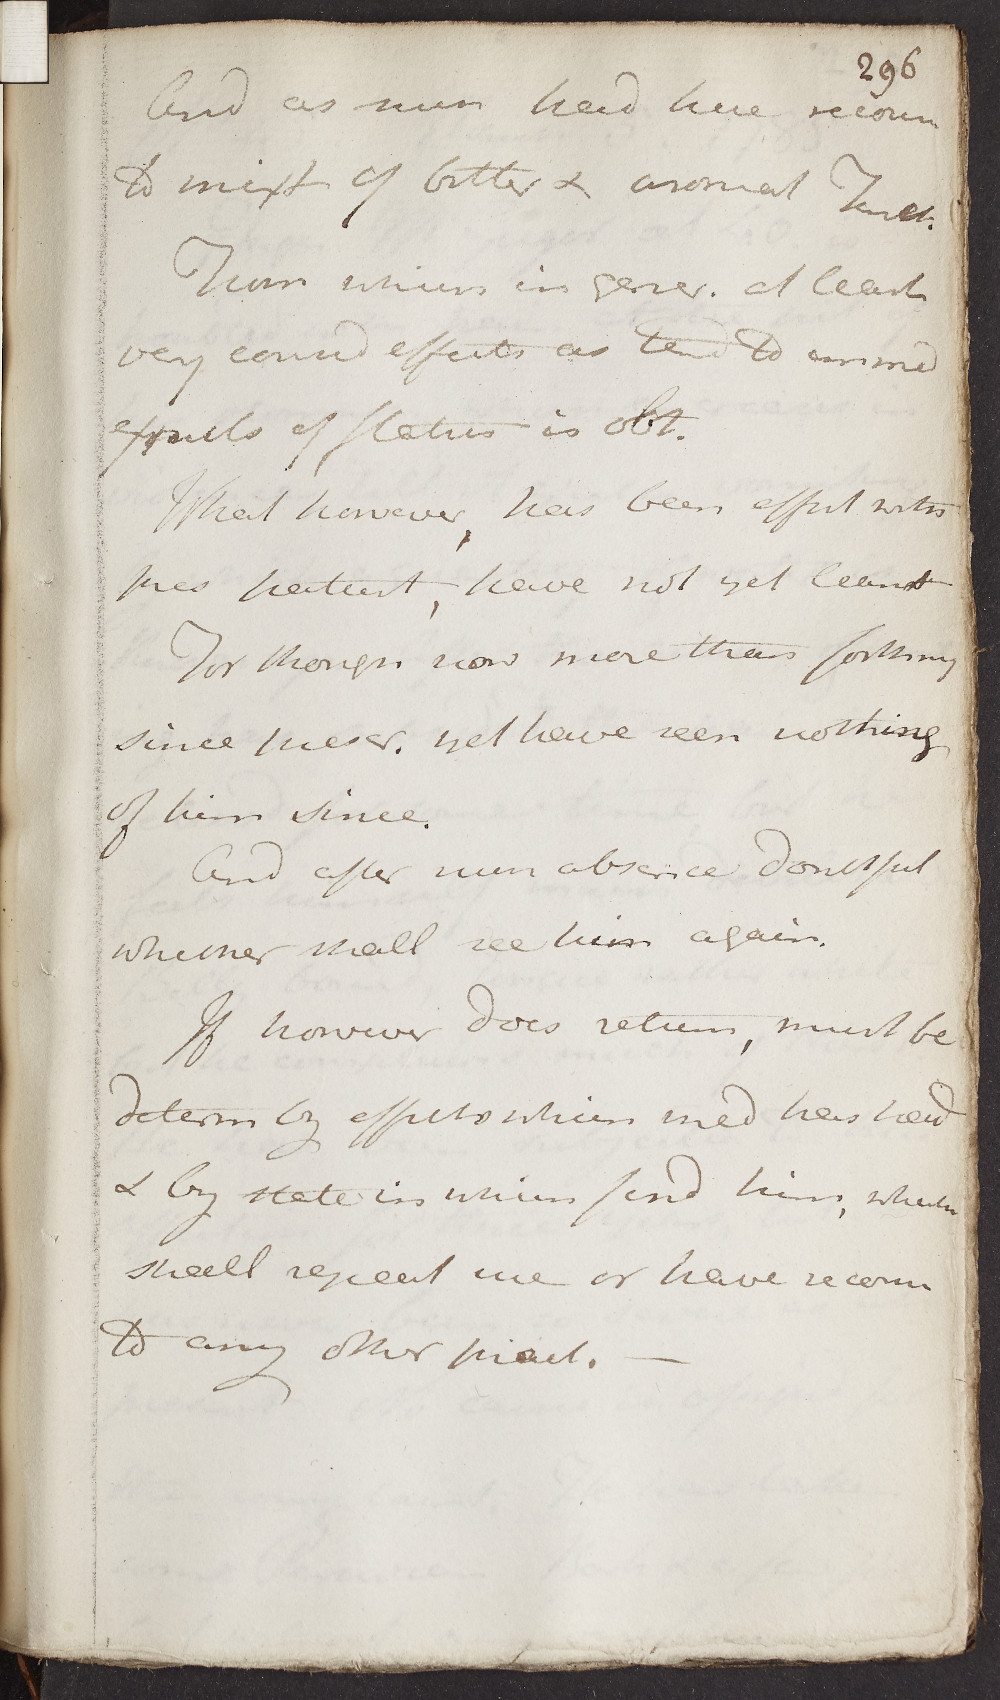 296
And as such had here recour
to mixt of bitter & aromat Tinct.
From which in gener. at least
very consid effects as tend to
expuls of flatus is obt.
What however, has been effect with
pres patient, have not yet learnt
For though now more than
since prescr. yet have seen nothing
of him since.
And after such absence doubtful
whether shall see him again.
If however does return, must be
determ by effects which med has had
& by state in which find him, whether
shall repeat use or have recour
to any other pract. —